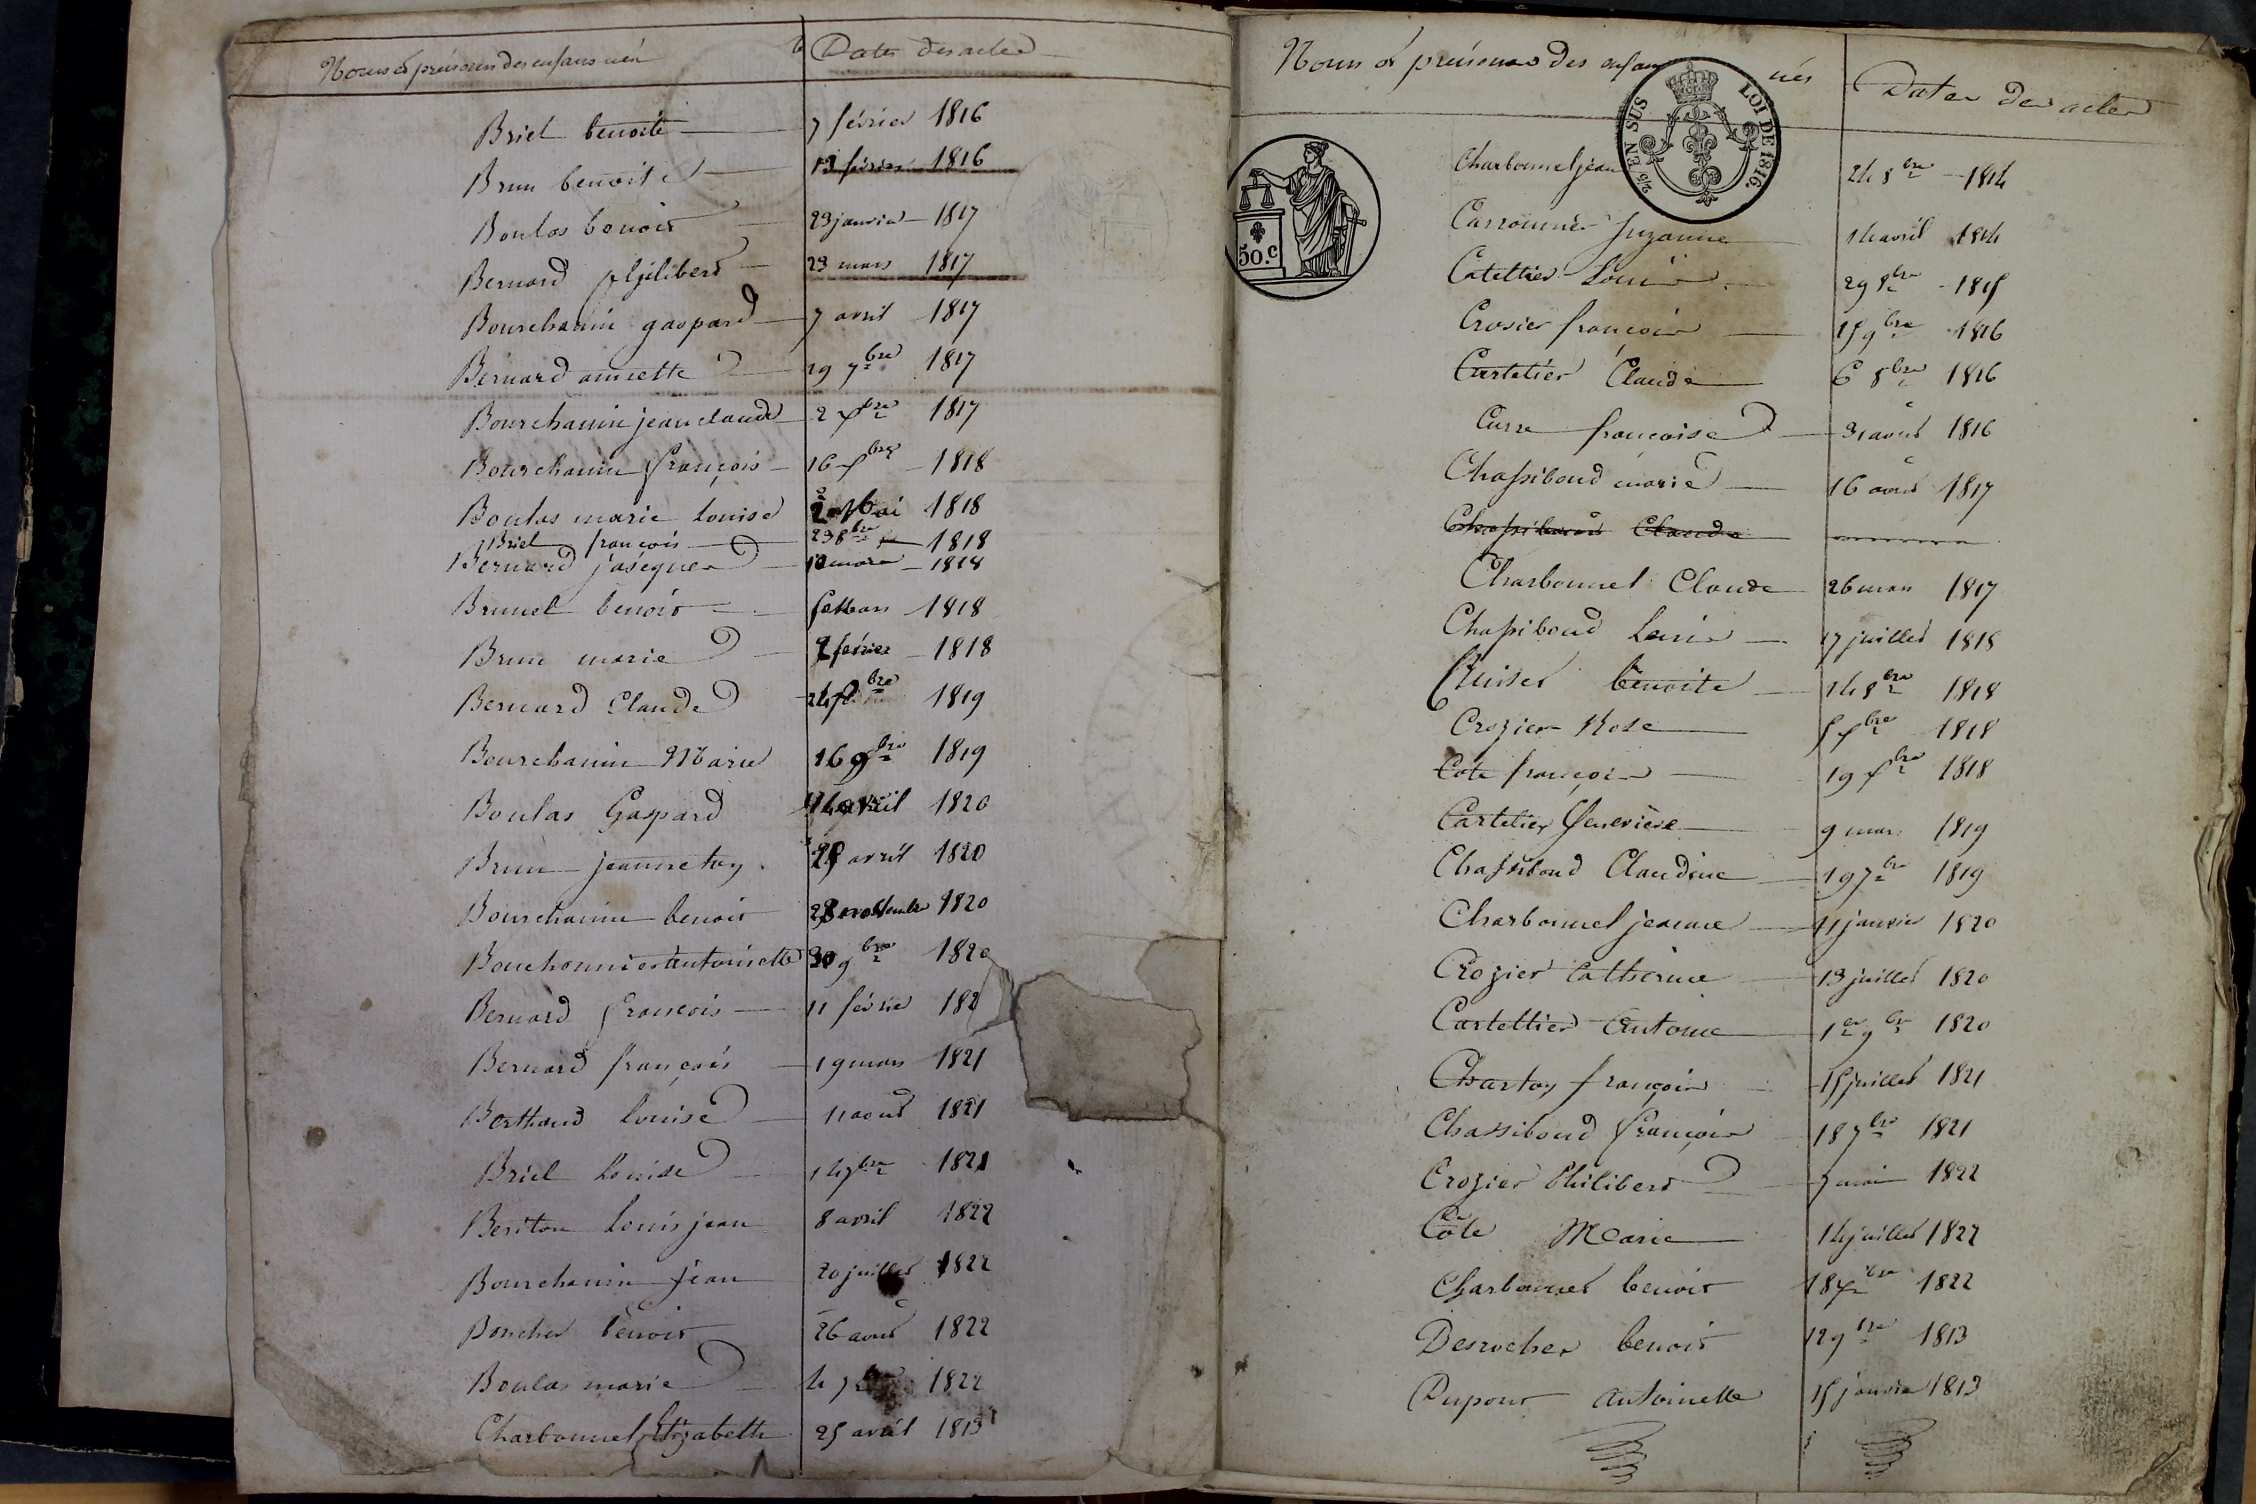 Noms & prénoms des enfans nés Dates des actes
Briel benoite 7 février 1816
Brun benoite 12 février 1816
Boulas benoit 23 janvier 1817
Bernard philibert 23 mars 1817
Bourchanin gaspard 7 avril 1817
Bernard annette 19 7bre 1817
Bourchanin jean claude 2 xbre 1817
Bourchanin françois 16 xbre 1818
Boulas marie Louise 1818
Briel françois 23 8bre 1818
Bernard jacques 10 mars 1818
Brunel benoit 1818
Brun marie 2 février 1818
Bernard Claude 1819
Bourchanin Marie 16 9bre 1819
Boulas Gaspard 14 avril 1820
Brun jeanne 25 avril 1820
Bourchanin benoit 1820
Bouchonnier antoinette 30 9bre 1820
Bernard françois 11 février 182
Bernard françois 19 mars 1821
Berthaud Louise 11 aout 1821
Briel Louise 14 7bre 1821
Beriton Louis jean 8 avril 1822
Bourchanin jean 20 juillet 1822
Boucher benoit 26 aout 1822
Boulas marie 4 7bre 1822
Charbonnel Elizabeth 25 avril 1813
Noms & prénoms des enfans nés Dates des actes
EN SUS LOI DE 1816.
50.c
Charbonnel jean 24 8bre 1814
Suzanne 14 avril 1814
Catettier Louis 29 8bre 1815
Crosier françois 15 9bre 1816
Cartetier Claude 6 8bre 1816
Curre françoise 31 aout 1816
Chassiboud marie 16 aout 1817
Chassiboud Claude
Charbonnel Claude 26 mars 1817
Chassiboud Louis 17 juillet 1818
benoite 14 8bre 1818
Crozier Rose 5 xbre 1818
Cote françois 19 xbre 1818
Cartelier Genevieve 9 mars 1819
Chassiboud Claudine 19 7bre 1819
Charbonnel jeanne 11 janvier 1820
Crozier Catherine 13 juillet 1820
Cartettier Antoine 1er 9bre 1820
Chartoy françois 15 juillet 1821
Chassiboud françois 18 7bre 1821
Crozier Philibert 5 mai 1822
Côte Marie 14 juillet 1822
Charbonnel benoit 18 xbre 1822
Desrocher benoit 12 9bre 1813
Dupont antoinette 15 janvier 1813